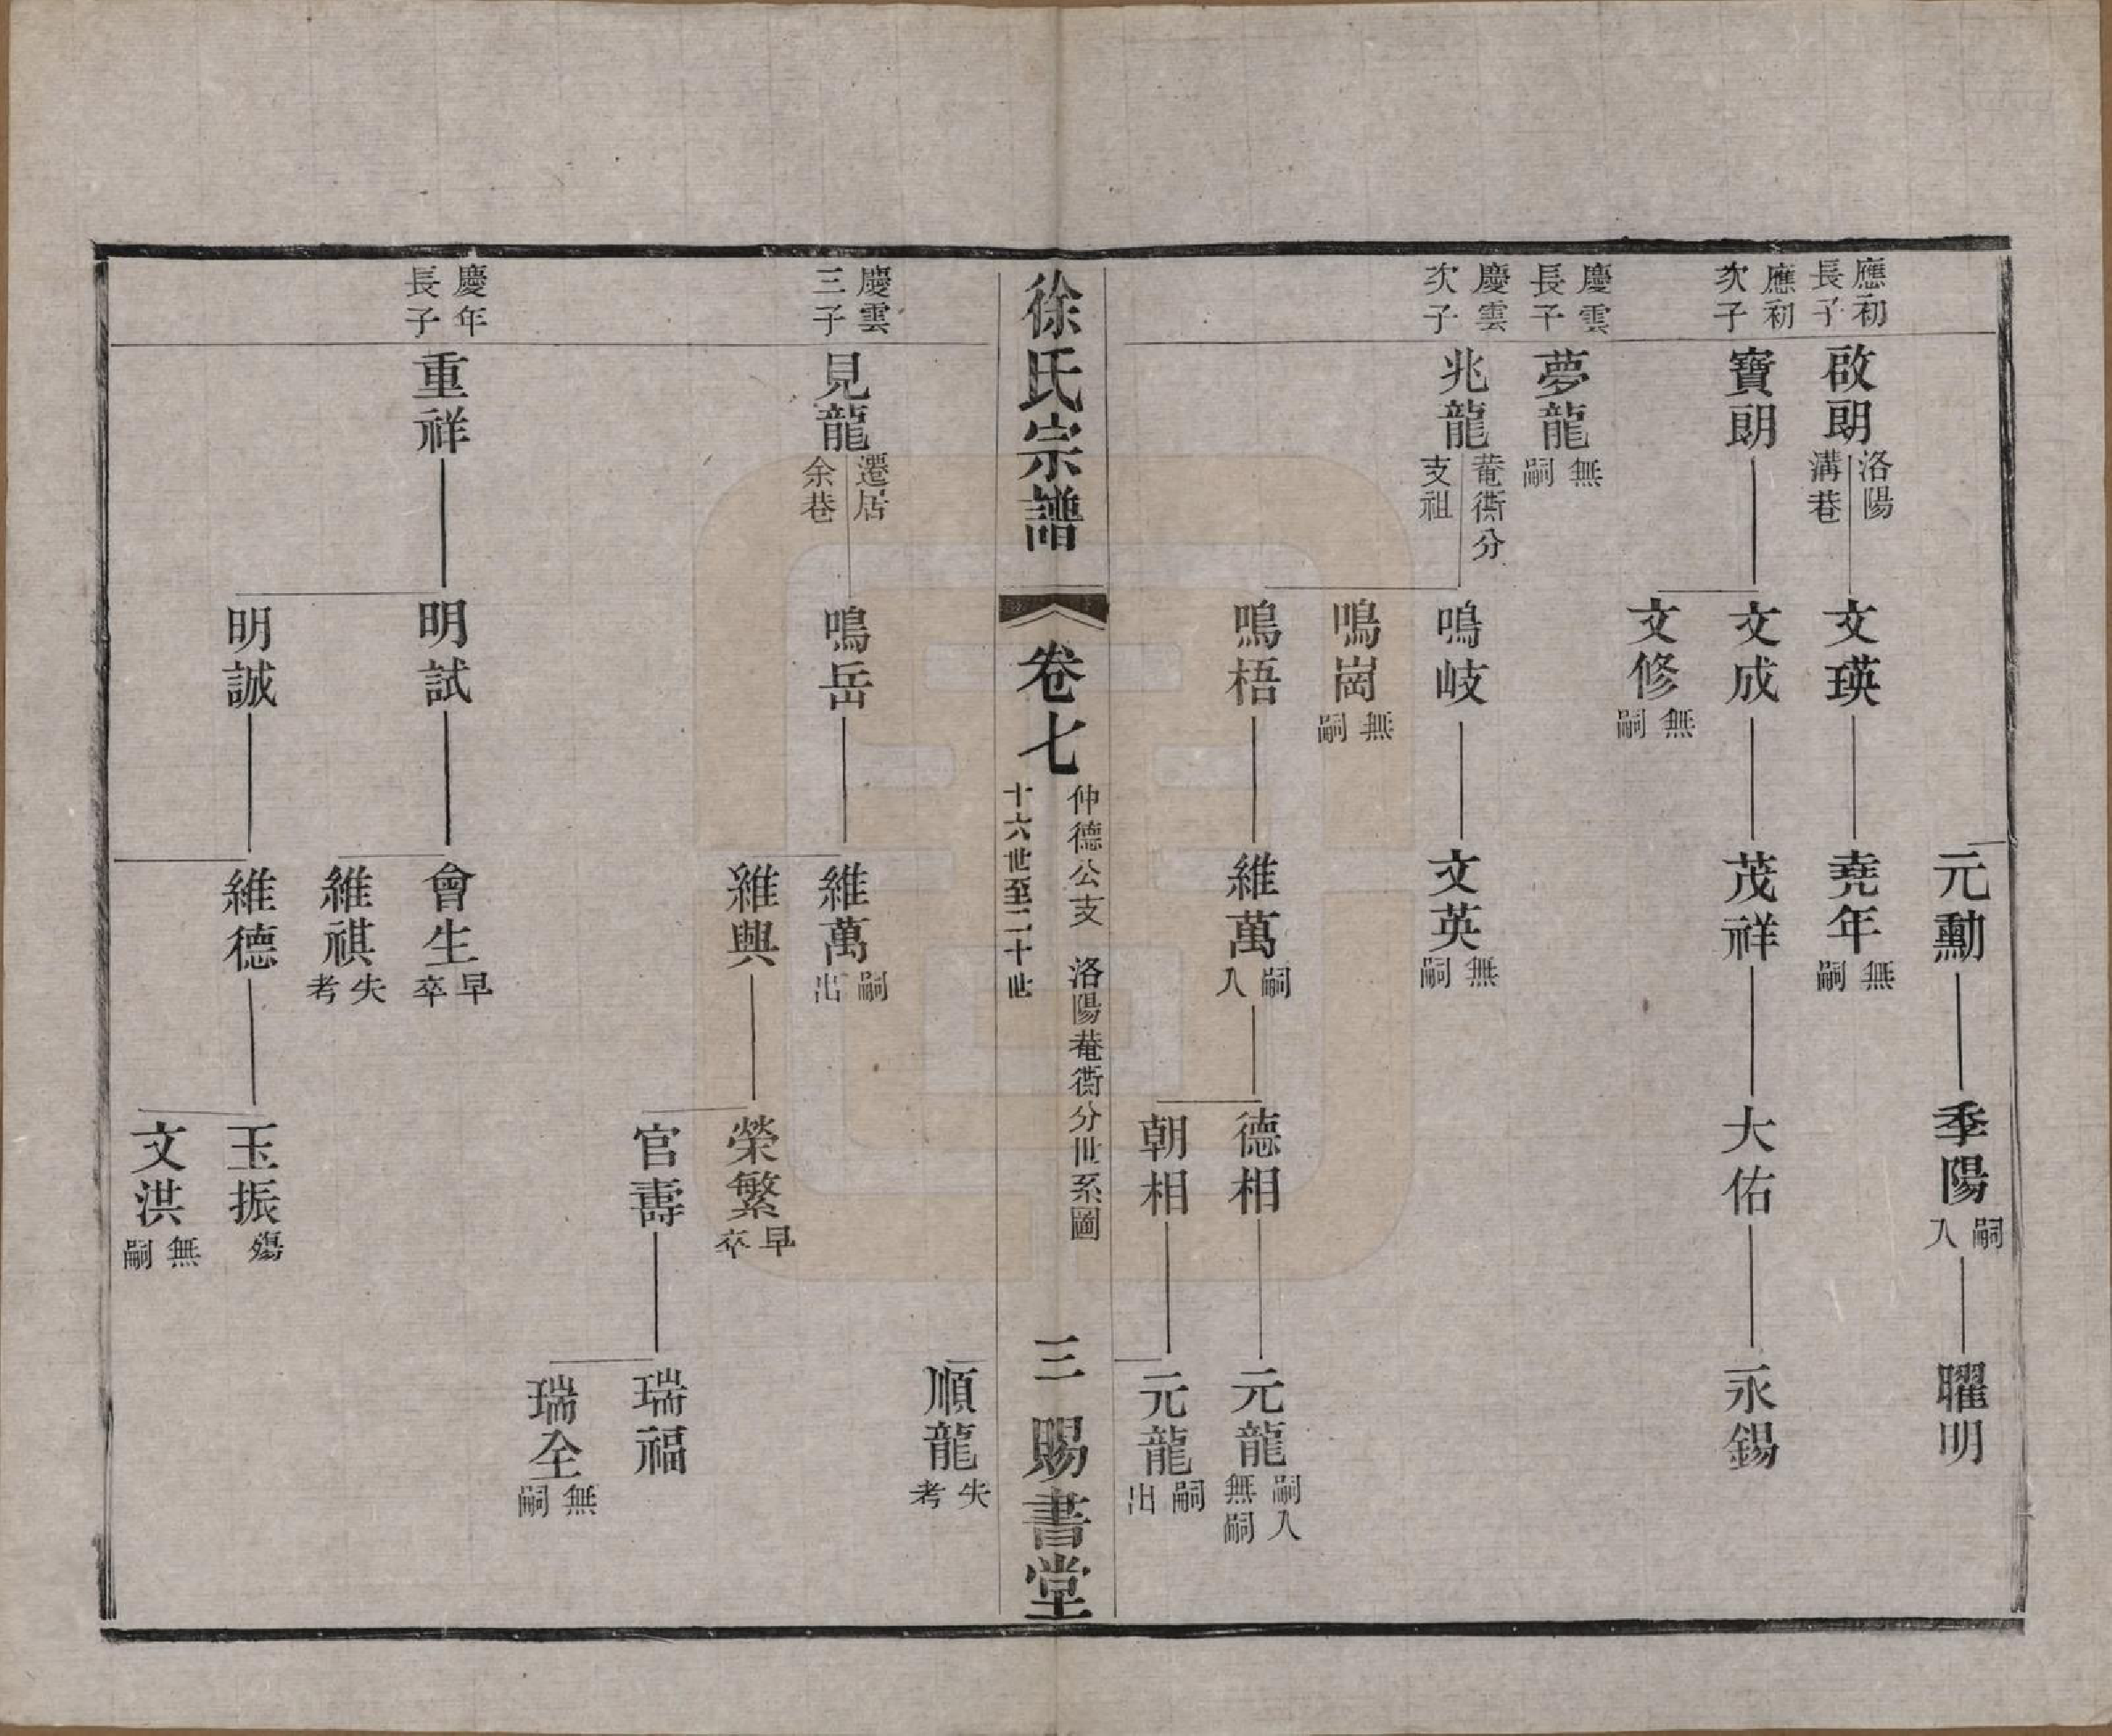 元勳
季陽 嗣入
曜明
應初長子
啟朗 洛陽溝巷
文瑛
堯年 無嗣
應初次子
寶朗
文成
茂祥
大佑
永錫
文修 無嗣
慶雲長子
夢龍 無嗣
慶雲次子
兆龍 菴衖分支祖
鳴岐
文英 無嗣
鳴崗 無嗣
鳴梧
維萬 嗣入
德相
元龍 嗣入無嗣
朝相
元龍 嗣出
徐氏宗譜
卷七
仲德公支 洛陽菴衖分世系圖
十六世至二十世
三賜書堂
順龍 失考
慶雲三子
見龍 遷居余巷
鳴岳
維萬 嗣出
維興
榮繁 早卒
官壽
瑞福
瑞全 無嗣
慶年長子
重祥
明試
會生 早卒
維祺 失考
明誠
維德
玉振 殤
文洪 無嗣